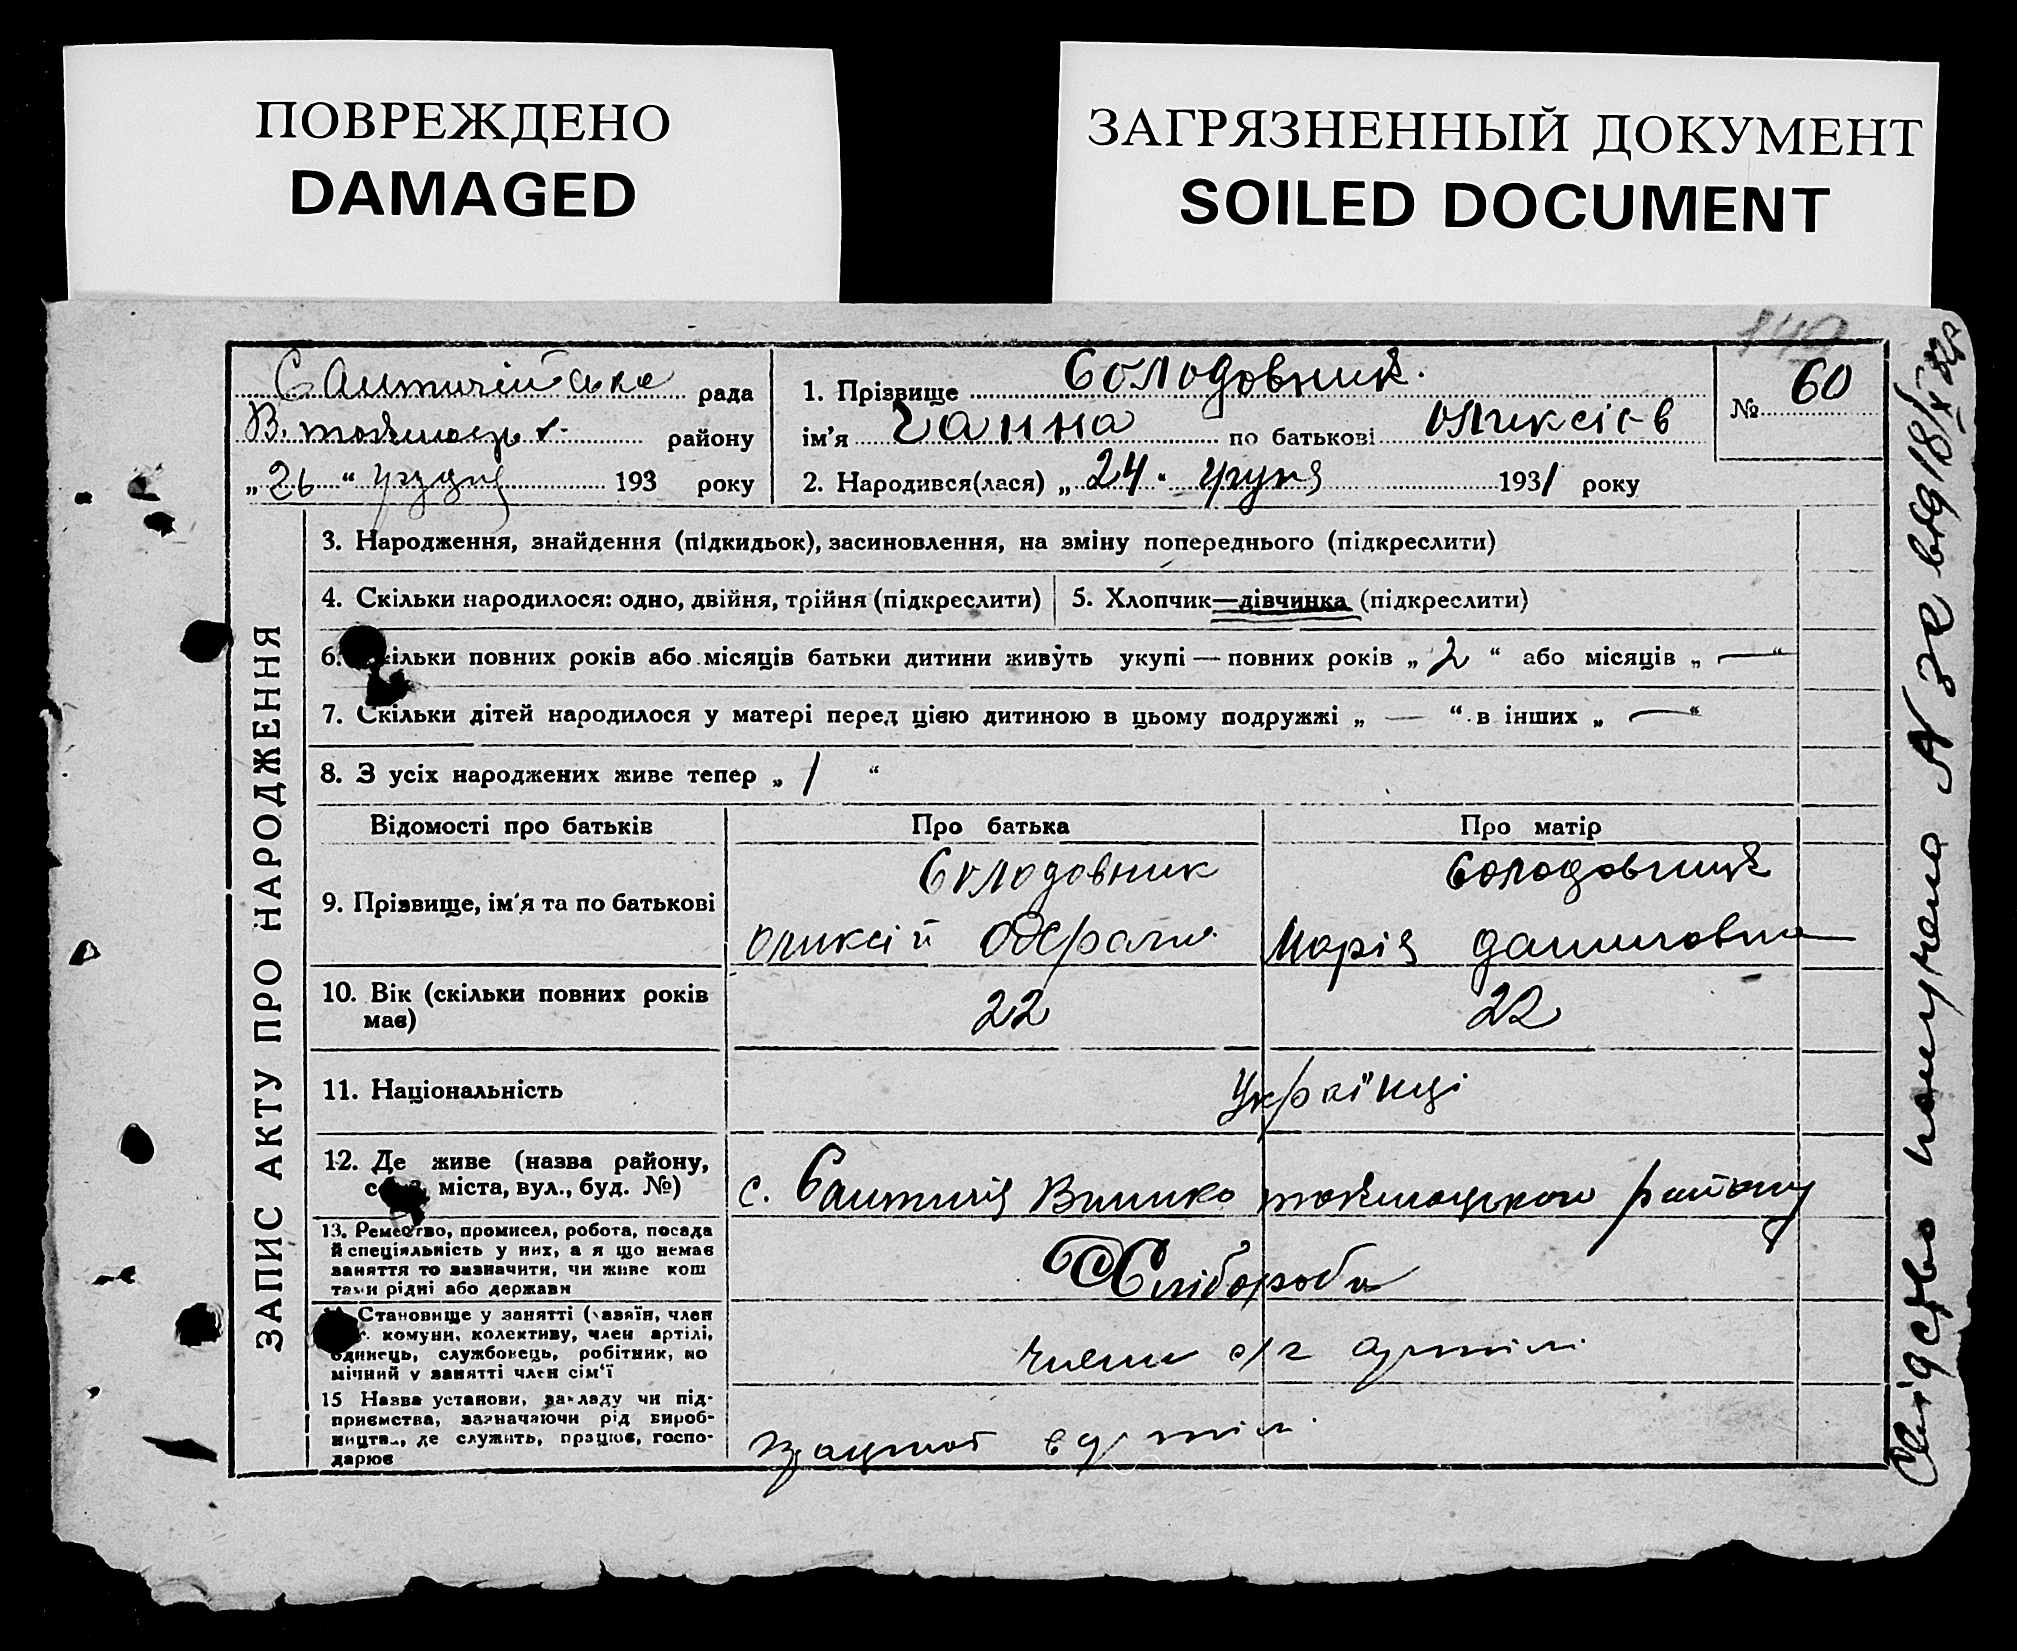 ПОВРЕЖДЕНО
DAMAGED
ЗАГРЯЗНЕННЫЙ ДОКУМЕНТ
SOILED DOCUMENT
140
рада
В. району
„ 26 “ 193 року
1. Прізвище Солодовник.
ім'я Ганна по батькові Оликсієв
№ 60
2. Народився(лася) „ 24 “ 1931 року
ЗАПИС АКТУ ПРО НАРОДЖЕННЯ
3. Народження, знайдення (підкидьок), засиновлення, на зміну попереднього (підкреслити)
4. Скільки народилося: одно, двійня, трійня (підкреслити)
5. Хлопчик—дівчинка (підкреслити)
6. Скільки повних років або місяців батьки дитини живуть укупі — повних років „ 2 “ або місяців „ — “
7. Скільки дітей народилося у матері перед цією дитиною в цьому подружжі „ — “ в інших „ — “
8. З усіх народжених живе тепер „ 1 “
Відомості про батьків
Про батька
Про матір
9. Прізвище, ім'я та по батькові
Солодовник
Оликсій
Солодовник
Марія Даниловна
10. Вік (скільки повних років
має)
22
22
11. Національність
Украінці
12. Де живе (назва району,
міста, вул., буд. №)
с. району
13. Ремество, промисел, робота, посада
й спеціяльність у них, а я що немає
заняття то зазначити, чи живе кош
тами рідні або держави
Хлібороби
Становище у занятті (хазяїн, член
комуни, колективу, член артілі,
одинець, службовець, робітник, по
мічний у занятті член сім'ї
члени с/г артілі
15 Назва установи, закладу чи під-
приємства, зазначаючи рід вироб-
ництва, де служить, працює, госпо-
дарює
в артілі
Свідоство получено № 32 від 18/